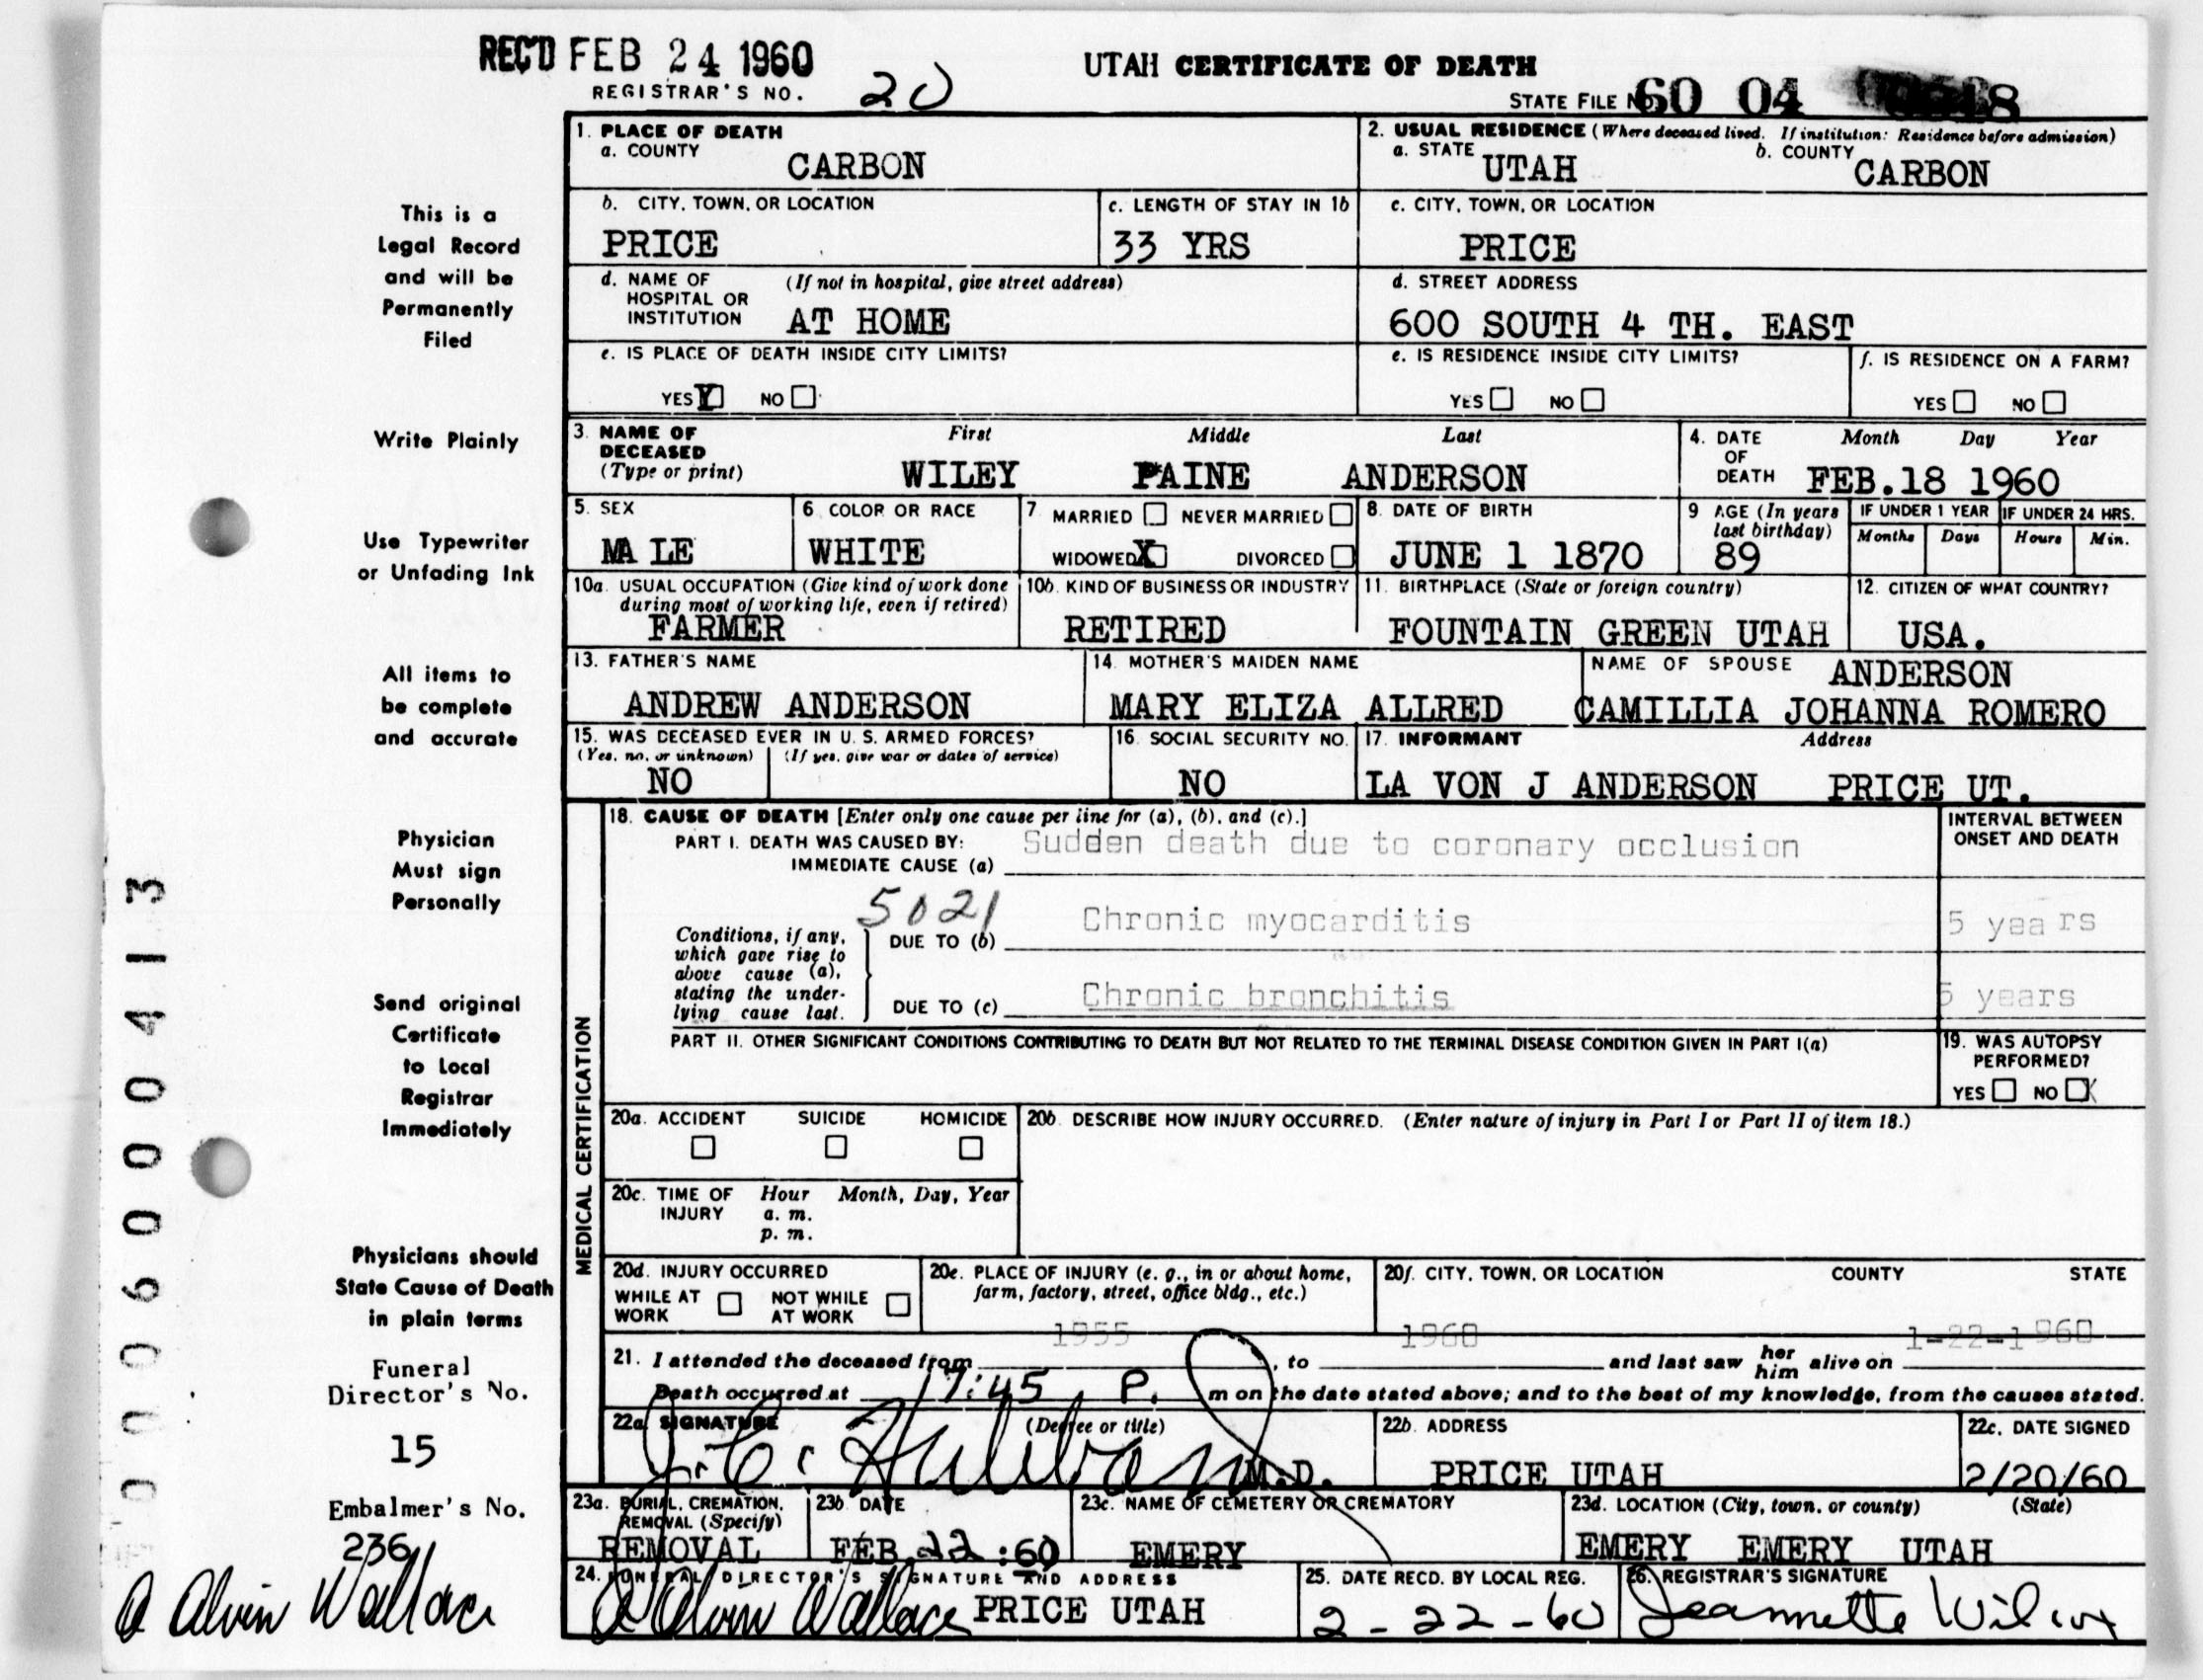 REC'D FEB 24 1960
UTAH CERTIFICATE OF DEATH
REGISTRAR'S NO. 20
STATE FILE NO. 60 04 18
1. PLACE OF DEATH
a. COUNTY CARBON
2. USUAL RESIDENCE (Where deceased lived. If institution: Residence before admission)
a. STATE UTAH b. COUNTY CARBON
This is a
Legal Record
and will be
Permanently
Filed
b. CITY, TOWN, OR LOCATION PRICE
c. LENGTH OF STAY IN 1b 33 YRS
c. CITY, TOWN, OR LOCATION PRICE
d. NAME OF HOSPITAL OR INSTITUTION (If not in hospital, give street address) AT HOME
d. STREET ADDRESS 600 SOUTH 4 TH. EAST
e. IS PLACE OF DEATH INSIDE CITY LIMITS?
YES Y NO
e. IS RESIDENCE INSIDE CITY LIMITS?
YES NO
f. IS RESIDENCE ON A FARM?
YES NO
Write Plainly
3. NAME OF DECEASED (Type or print)
First Middle Last
WILEY PAINE ANDERSON
4. DATE OF DEATH Month Day Year
FEB.18 1960
Use Typewriter
or Unfading Ink
5. SEX MALE
6 COLOR OR RACE WHITE
7 MARRIED NEVER MARRIED
WIDOWED X DIVORCED
8. DATE OF BIRTH JUNE 1 1870
9 AGE (In years last birthday) 89
IF UNDER 1 YEAR Months Days
IF UNDER 24 HRS. Hours Min.
10a. USUAL OCCUPATION (Give kind of work done during most of working life, even if retired)
FARMER
10b. KIND OF BUSINESS OR INDUSTRY
RETIRED
11. BIRTHPLACE (State or foreign country)
FOUNTAIN GREEN UTAH
12. CITIZEN OF WHAT COUNTRY?
USA.
All items to
be complete
and accurate
13. FATHER'S NAME
ANDREW ANDERSON
14. MOTHER'S MAIDEN NAME
MARY ELIZA ALLRED
NAME OF SPOUSE ANDERSON
CAMILLIA JOHANNA ROMERO
15. WAS DECEASED EVER IN U. S. ARMED FORCES?
(Yes, no, or unknown) (If yes, give war or dates of service)
NO
16. SOCIAL SECURITY NO.
NO
17. INFORMANT Address
LA VON J ANDERSON PRICE UT.
Physician
Must sign
Personally
18. CAUSE OF DEATH [Enter only one cause per line for (a), (b), and (c).]
PART I. DEATH WAS CAUSED BY:
IMMEDIATE CAUSE (a) Sudden death due to coronary occlusion
INTERVAL BETWEEN ONSET AND DEATH
5021
Conditions, if any, which gave rise to above cause (a), stating the underlying cause last.
DUE TO (b) Chronic myocarditis 5 years
DUE TO (c) Chronic bronchitis 5 years
Send original
Certificate
to Local
Registrar
Immediately
PART II. OTHER SIGNIFICANT CONDITIONS CONTRIBUTING TO DEATH BUT NOT RELATED TO THE TERMINAL DISEASE CONDITION GIVEN IN PART I(a)
19. WAS AUTOPSY PERFORMED?
YES NO X
MEDICAL CERTIFICATION
20a. ACCIDENT SUICIDE HOMICIDE
20b. DESCRIBE HOW INJURY OCCURRED. (Enter nature of injury in Part I or Part II of item 18.)
20c. TIME OF INJURY Hour Month, Day, Year
a. m.
p. m.
Physicians should
State Cause of Death
in plain terms
20d. INJURY OCCURRED
WHILE AT WORK NOT WHILE AT WORK
20e. PLACE OF INJURY (e. g., in or about home, farm, factory, street, office bldg., etc.)
20f. CITY, TOWN, OR LOCATION COUNTY STATE
21. I attended the deceased from 1955, to 1960 and last saw her him alive on 1-22-1960
Death occurred at 7:45 P. m on the date stated above; and to the best of my knowledge, from the causes stated.
Funeral
Director's No.
15
22a. SIGNATURE (Degree or title)
M.D.
22b. ADDRESS
PRICE UTAH
22c. DATE SIGNED
2/20/60
Embalmer's No.
236
23a. BURIAL, CREMATION, REMOVAL (Specify)
REMOVAL
23b. DATE
FEB 22 :60
23c. NAME OF CEMETERY OR CREMATORY
EMERY
23d. LOCATION (City, town, or county) (State)
EMERY EMERY UTAH
Alvin Wallace
24. FUNERAL DIRECTOR'S SIGNATURE AND ADDRESS
Alvin Wallace PRICE UTAH
25. DATE RECD. BY LOCAL REG.
2-22-60
26. REGISTRAR'S SIGNATURE
Jeannette Wilcox